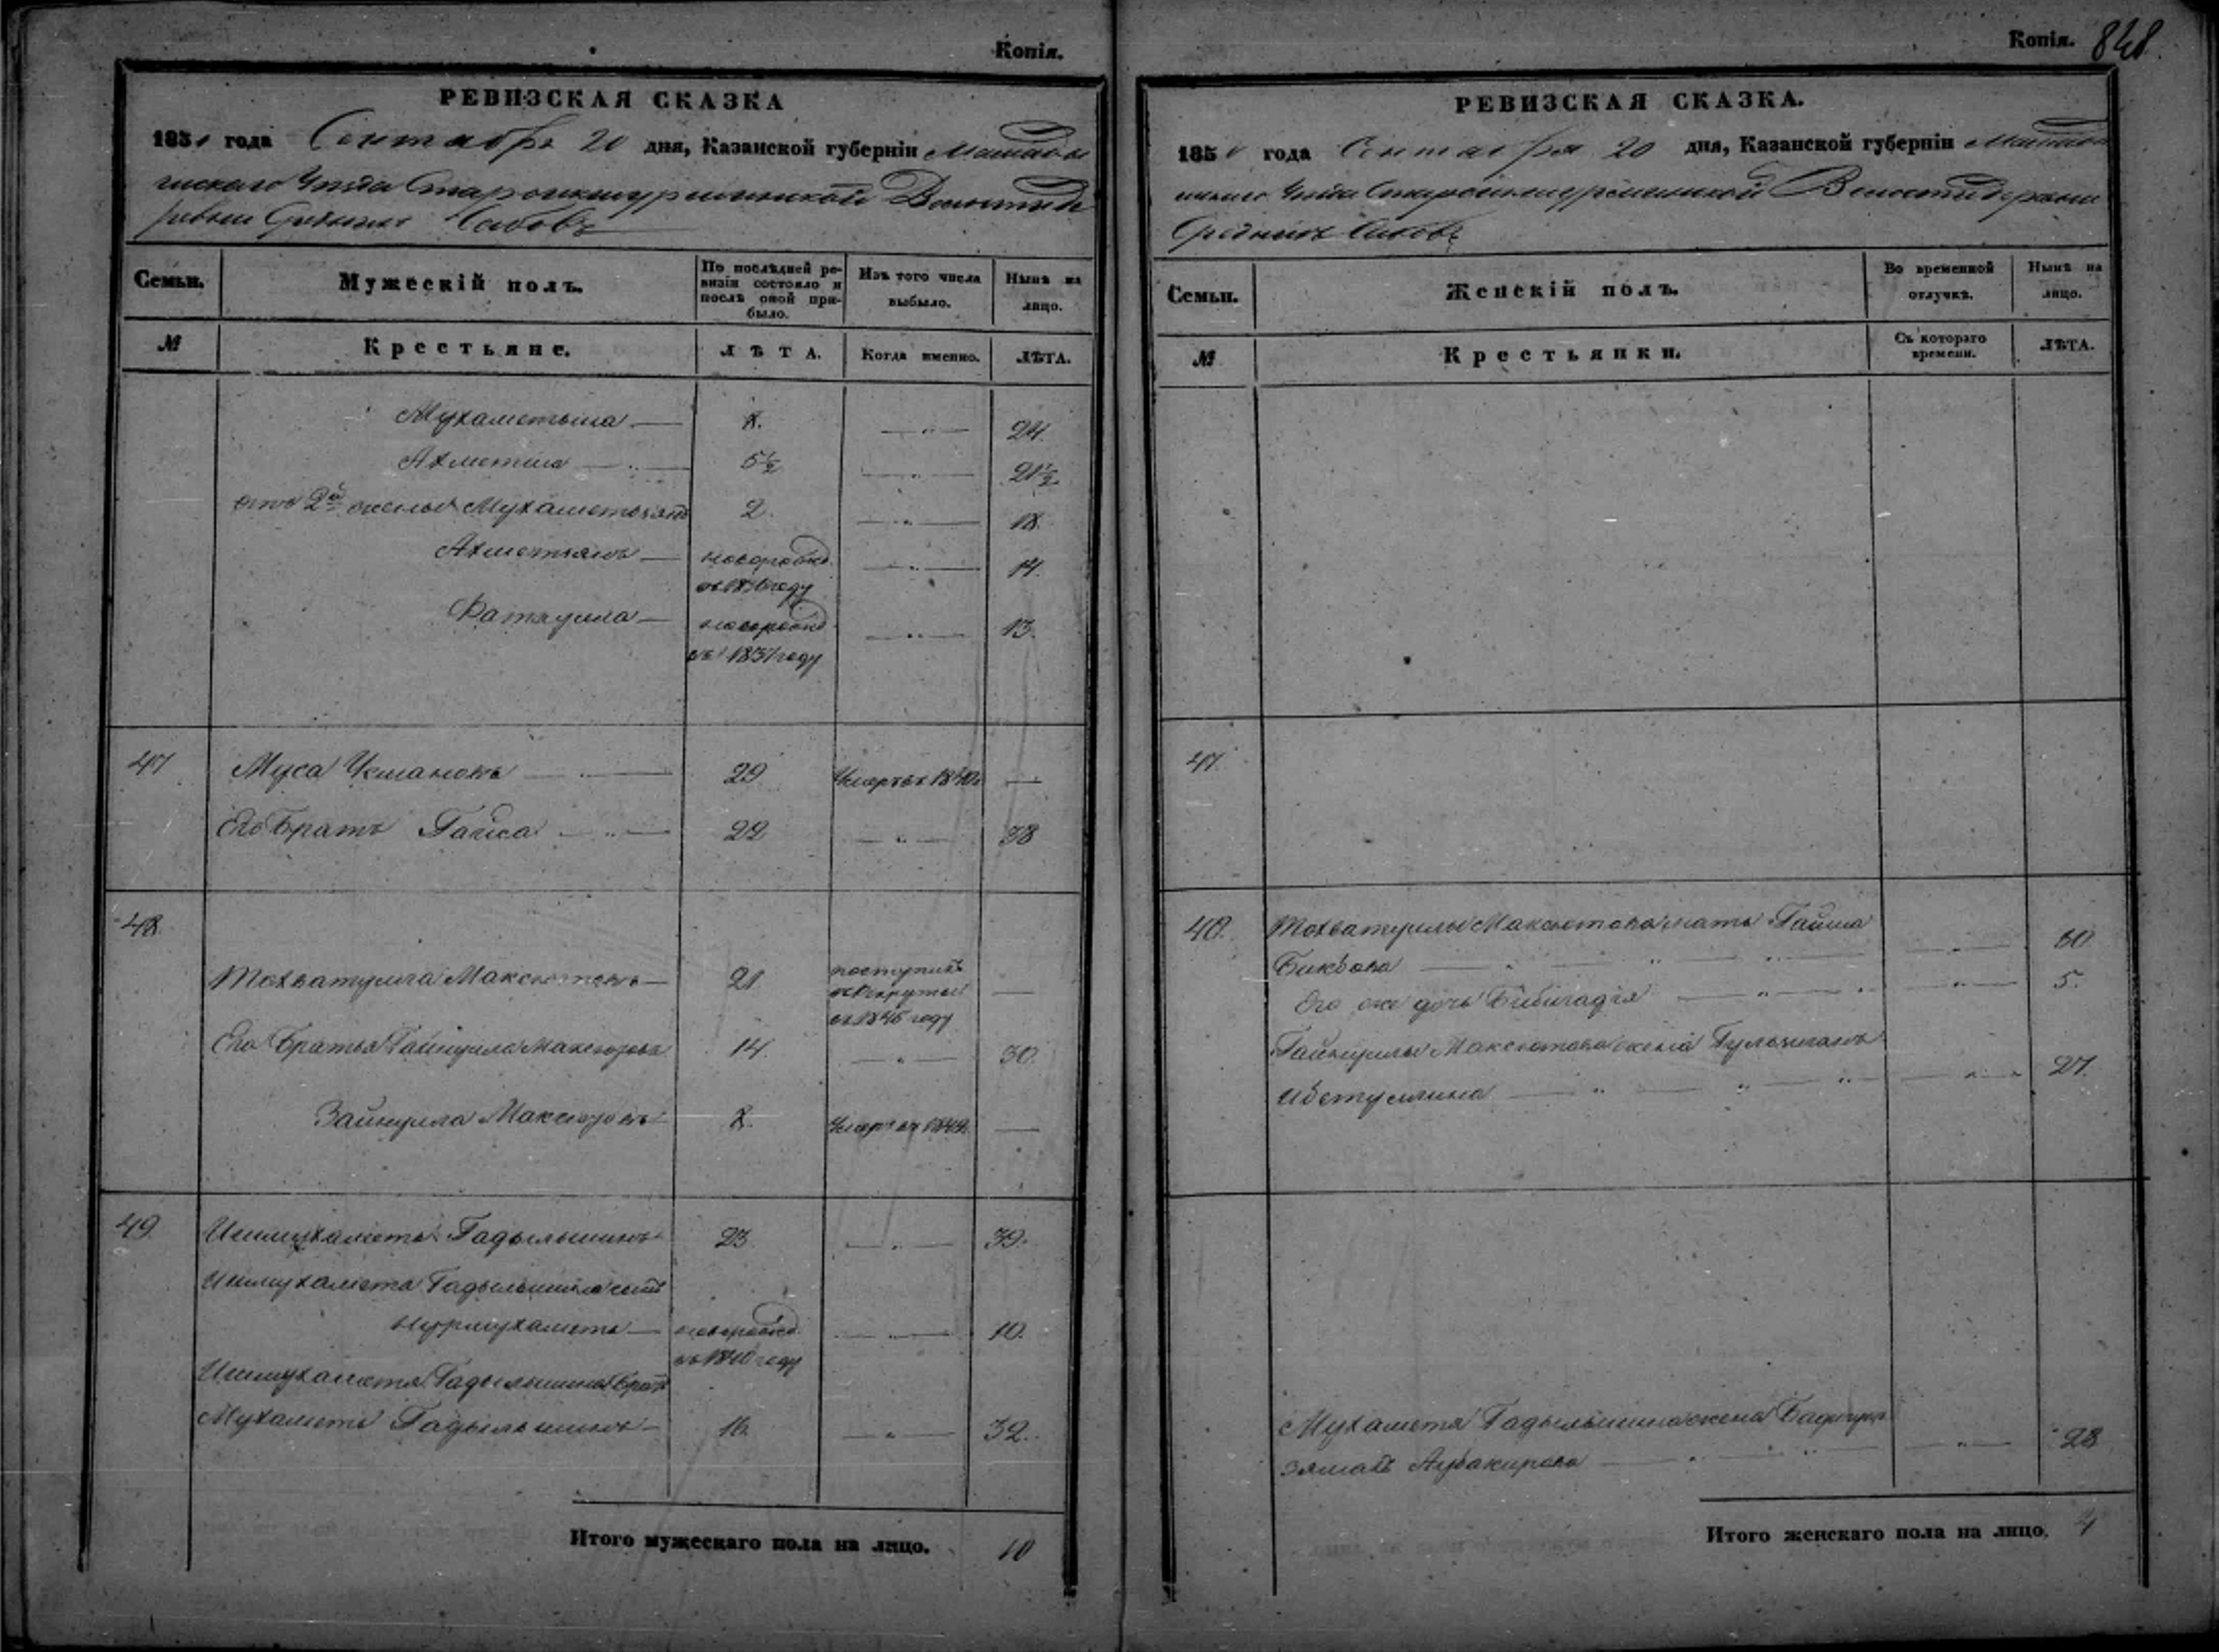 Копія.
РЕВИЗСКАЯ СКАЗКА
1850 года Сентября 20 дня, Казанской губерніи Мамады
шскаго Уѣзда Староикшурминской Волости де
ревни Среднихъ Сабовъ
Семьи.
Мужескій полъ.
По послѣдней ре-
визіи состояло и
послѣ оной при-
было.
Изъ того числа
выбыло.
Нынѣ на
лицо.
№
Крестьяне.
ЛѢТА.
Когда именно.
ЛѢТА.
Мухаметьша 8. 24.
Ахметша 5½ 21½
отъ 2й жены Мухаметьянъ 2. 18.
Ахметьянъ новорожд. 14.
въ 1836 году
Фаткулла новорожд. 13.
въ 1837 году
47 Муса Усмановъ 29 Умеръ въ 1840 —
Его Братъ Гайса 22 38
48.
Мохватулла Максютовъ 21 поступилъ
въ рекруты —
въ 1846 году
Его Братья Гайнулла Максютовъ 14. 30.
Зайнулла Максютовъ 8. Умеръ въ 1842 —
49. Ишмухаметъ Гадыльшинъ 23 39.
Ишмухамета Гадыльшина сынъ
Нурмухаметъ новорожд. 10.
въ 1840 году
Ишмухаметя Гадыльшина братъ
Мухаметъ Гадыльшинъ 16. 32.
Итого мужескаго пола на лицо. 10
Копія. 848.
РЕВИЗСКАЯ СКАЗКА.
1850 года Сентября 20 дня, Казанской губерніи Мамады
шскаго Уѣзда Староикшурминской Волости деревни
Среднихъ Сабовъ
Семьи.
Женскій полъ.
Во временной
отлучкѣ.
Нынѣ на
лицо.
№
Крестьянки.
Съ котораго
времени.
ЛѢТА.
47.
48. Мохватуллы Максютова мать Гайша
Бикѣева 60
Его же дочь Бибигадія 5.
Гайнуллы Максютова жена Гульжиганъ
27.
Мухаметя Гадыльшина жена Бадигул
зямалъ Аубакирова 28
Итого женскаго пола на лицо. 4